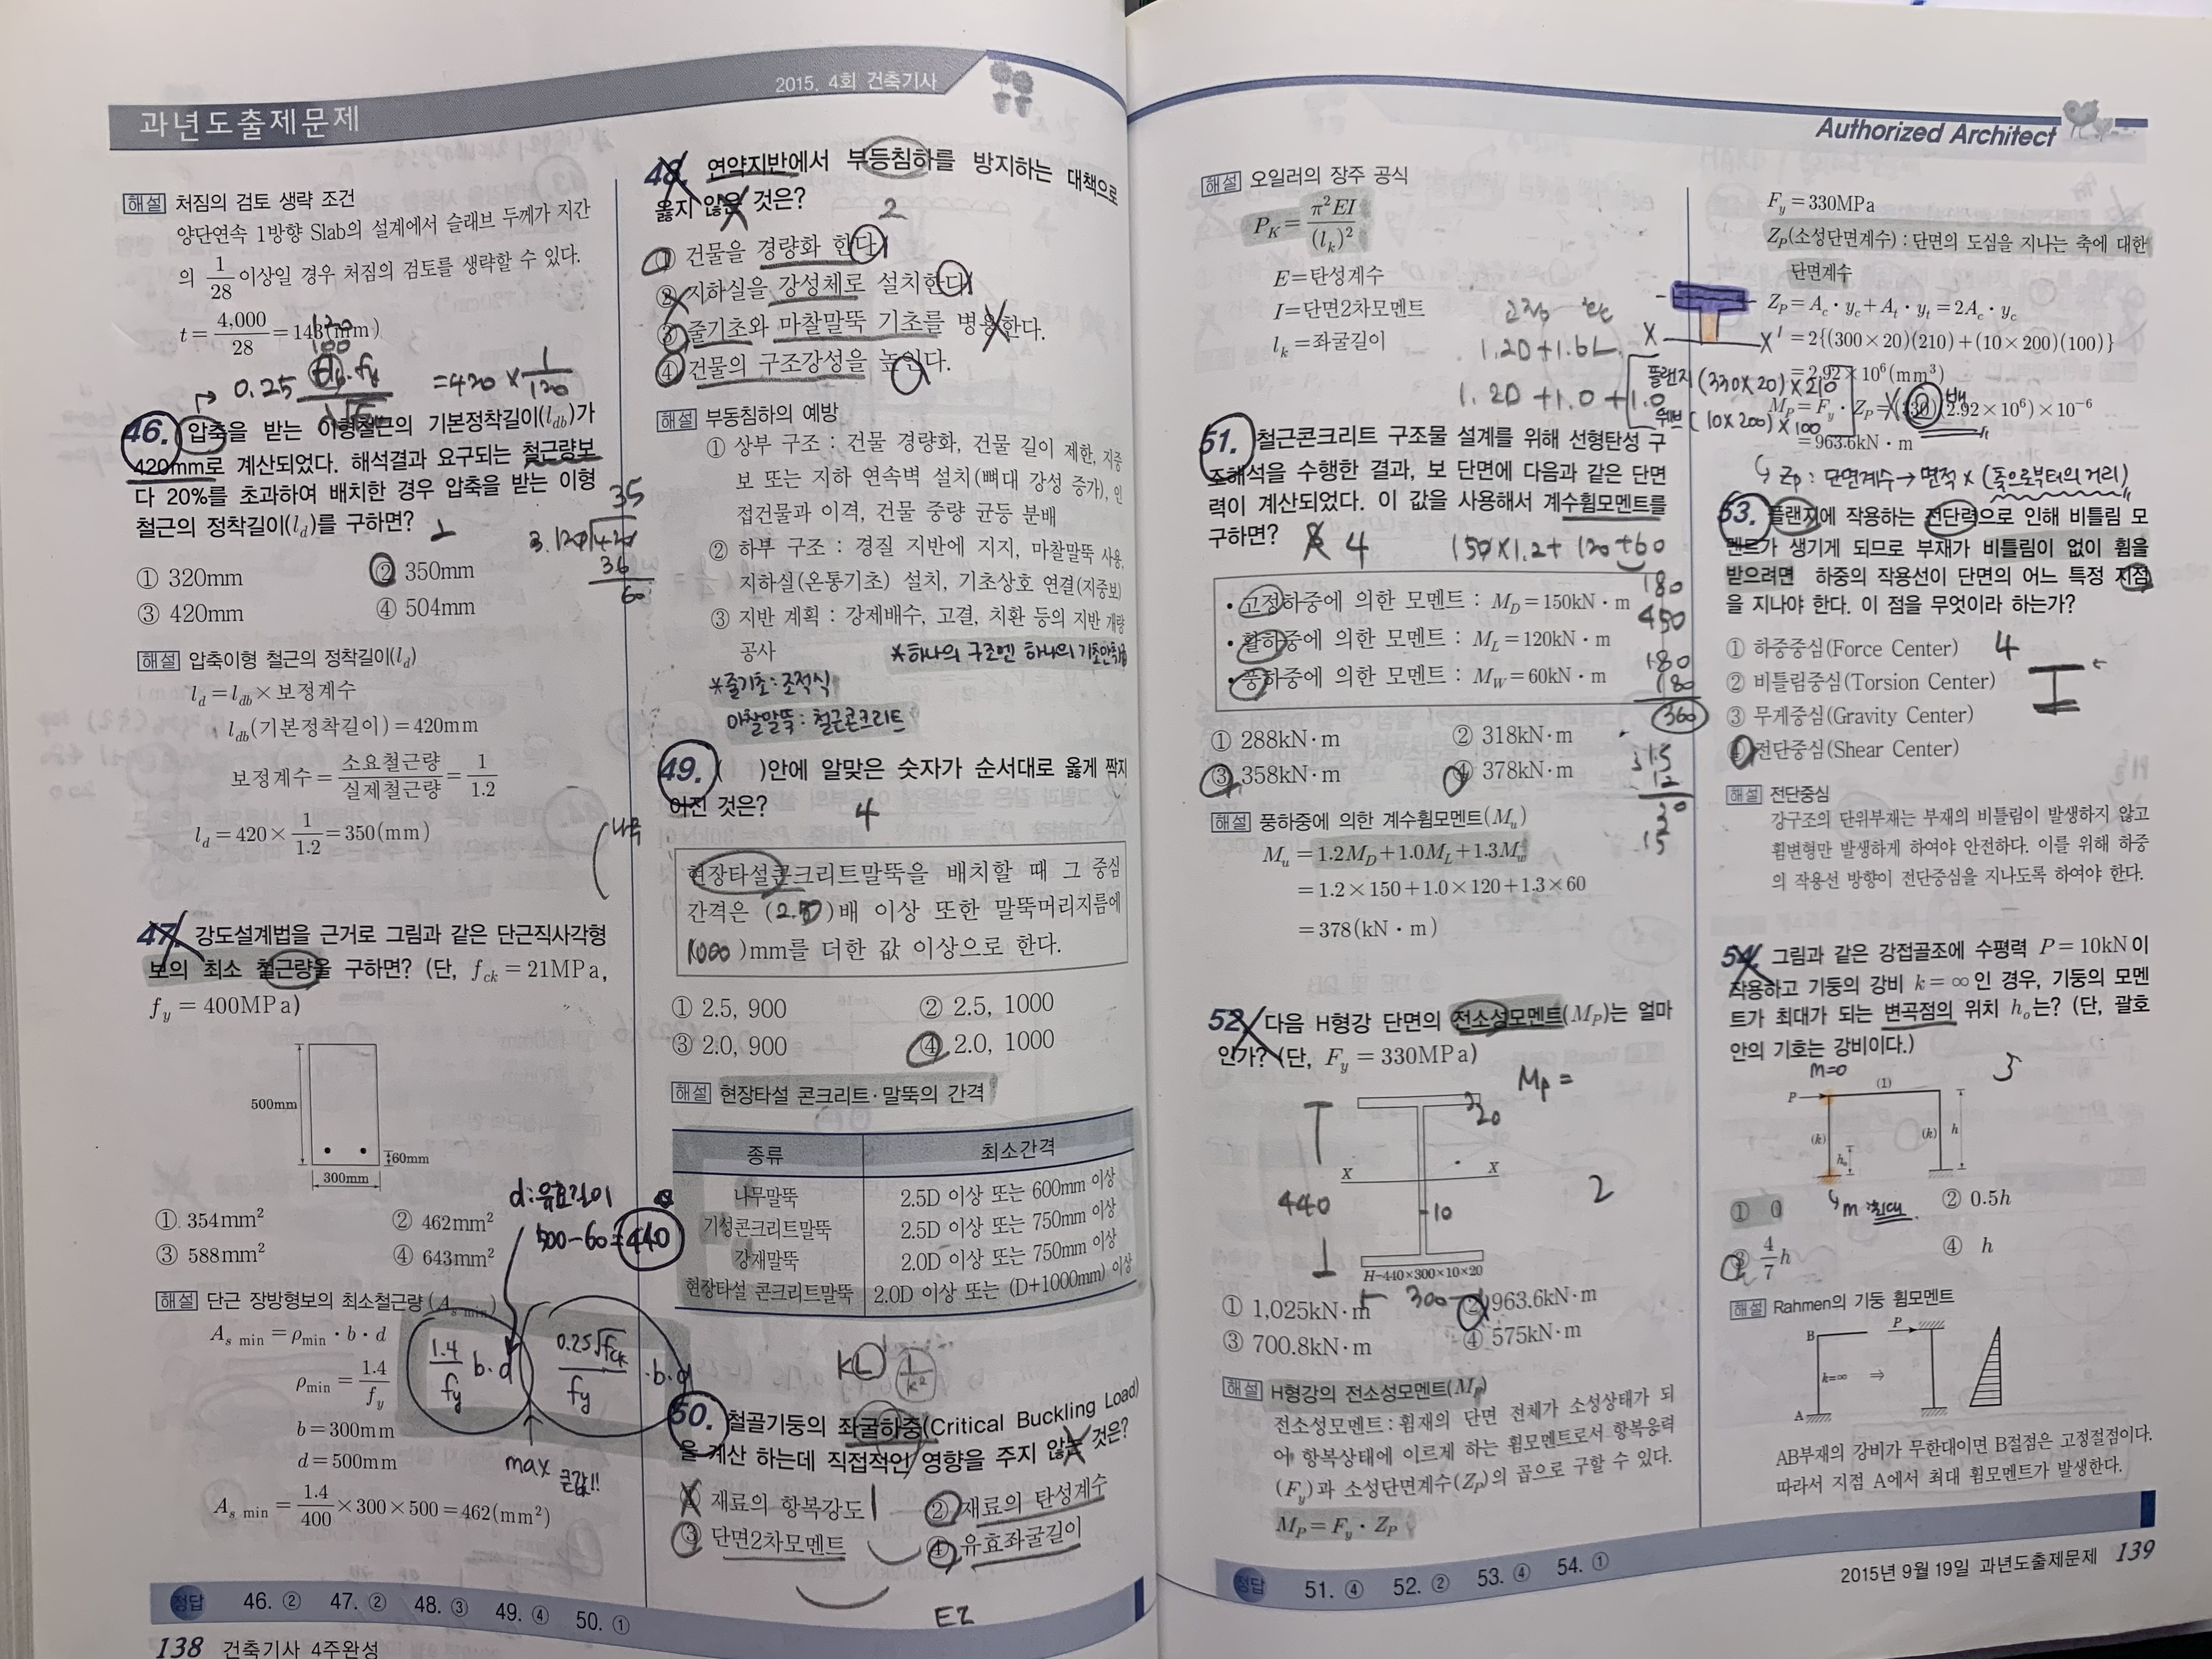 과년도출제문제
2015. 4회 건축기사
해설 처짐의 검토 생략 조건
양단연속 1방향 Slab의 설계에서 슬래브 두께가 지간
의 1/28 이상일 경우 처짐의 검토를 생략할 수 있다.
t = 4,000/28 = 143(mm)
0.25
= 420 × 1/120
46. 압축을 받는 이형철근의 기본정착길이(l_db)가
420mm로 계산되었다. 해석결과 요구되는 철근량보
다 20%를 초과하여 배치한 경우 압축을 받는 이형
철근의 정착길이(l_d)를 구하면?
① 320mm ② 350mm
③ 420mm ④ 504mm
35
36
60
해설 압축이형 철근의 정착길이(l_d)
l_d = l_db × 보정계수
l_db(기본정착길이) = 420mm
보정계수 = 소요철근량/실제철근량 = 1/1.2
l_d = 420 × 1/1.2 = 350(mm)
나무
47. 강도설계법을 근거로 그림과 같은 단근직사각형
보의 최소 철근량을 구하면? (단, f_ck = 21MPa,
f_y = 400MPa)
500mm
60mm
300mm
① 354mm² ② 462mm²
③ 588mm² ④ 643mm²
d : 유효길이
500-60=440
해설 단근 장방형보의 최소철근량(A_s min)
A_s min = ρ_min · b · d
ρ_min = 1.4/f_y
b = 300mm
d = 500mm
A_s min = 1.4/400 × 300 × 500 = 462(mm²)
1.4/fy b·d
0.25√fck/fy ·b·d
max 큰값!!
48. 연약지반에서 부등침하를 방지하는 대책으로
옳지 않은 것은?
2
① 건물을 경량화 한다.
② 지하실을 강성체로 설치한다.
③ 줄기초와 마찰말뚝 기초를 병용한다.
④ 건물의 구조강성을 높인다.
해설 부동침하의 예방
① 상부 구조 : 건물 경량화, 건물 길이 제한, 지중
보 또는 지하 연속벽 설치(뼈대 강성 증가), 인
접건물과 이격, 건물 중량 균등 분배
② 하부 구조 : 경질 지반에 지지, 마찰말뚝 사용,
지하실(온통기초) 설치, 기초상호 연결(지중보)
③ 지반 계획 : 강제배수, 고결, 치환 등의 지반 개량
공사
*하나의 구조엔 하나의
*줄기초 : 조적식
마찰말뚝 : 철근콘크리트
49. ( )안에 알맞은 숫자가 순서대로 옳게 짝지
어진 것은?
4
현장타설콘크리트말뚝을 배치할 때 그 중심
간격은 ( )배 이상 또한 말뚝머리지름에
(1000)mm를 더한 값 이상으로 한다.
① 2.5, 900 ② 2.5, 1000
③ 2.0, 900 ④ 2.0, 1000
해설 현장타설 콘크리트·말뚝의 간격
종류 최소간격
나무말뚝 2.5D 이상 또는 600mm 이상
기성콘크리트말뚝 2.5D 이상 또는 750mm 이상
강재말뚝 2.0D 이상 또는 750mm 이상
현장타설 콘크리트말뚝 2.0D 이상 또는 (D+1000mm) 이상
KL 1/k²
50. 철골기둥의 좌굴하중(Critical Buckling Load)
을 계산 하는데 직접적인 영향을 주지 않는 것은?
① 재료의 항복강도 ② 재료의 탄성계수
③ 단면2차모멘트 ④ 유효좌굴길이
정답 46. ② 47. ② 48. ③ 49. ④ 50. ①
138 건축기사 4주완성
Authorized Architect
해설 오일러의 장주 공식
P_K = π²EI/(l_k)²
E = 탄성계수
I = 단면2차모멘트
l_k = 좌굴길이
1.2D+1.6L
1.2D+1.0+1.0
51. 철근콘크리트 구조물 설계를 위해 선형탄성 구
조해석을 수행한 결과, 보 단면에 다음과 같은 단면
력이 계산되었다. 이 값을 사용해서 계수휨모멘트를
구하면?
4
150×1.2+ 120+60
• 고정하중에 의한 모멘트 : M_D = 150kN·m
• 활하중에 의한 모멘트 : M_L = 120kN·m
• 풍하중에 의한 모멘트 : M_W = 60kN·m
180
450
180
180
360
① 288kN·m ② 318kN·m
③ 358kN·m ④ 378kN·m
해설 풍하중에 의한 계수휨모멘트(M_u)
M_u = 1.2M_D + 1.0M_L + 1.3M_w
= 1.2×150+1.0×120+1.3×60
= 378(kN·m)
52. 다음 H형강 단면의 전소성모멘트(M_P)는 얼마
인가? (단, F_y = 330MPa)
Mp =
20
X X
440
10
2
H-440×300×10×20
300
① 1,025kN·m ② 963.6kN·m
③ 700.8kN·m ④ 575kN·m
해설 H형강의 전소성모멘트(M_P)
전소성모멘트 : 휨재의 단면 전체가 소성상태가 되
어 항복상태에 이르게 하는 휨모멘트로서 항복응력
(F_y)과 소성단면계수(Z_P)의 곱으로 구할 수 있다.
M_P = F_y · Z_P
F_y = 330MPa
Z_P(소성단면계수) : 단면의 도심을 지나는 축에 대한
단면계수
Z_P = A_c · y_c + A_t · y_t = 2A_c · y_c
= 2{(300×20)(210)+(10×200)(100)}
= 2.92×10⁶(mm³)
M_P = F_y · Z_P = (330)(2.92×10⁶)×10⁻⁶
= 963.6kN·m
X X
플랜지 (330×20)×210
웨브 (10×200)×100
×2배
Zp : 단면계수 → 면적 × (축으로부터의 거리)
53. 플랜지에 작용하는 전단력으로 인해 비틀림 모
멘트가 생기게 되므로 부재가 비틀림이 없이 휨을
받으려면 하중의 작용선이 단면의 어느 특정 지점
을 지나야 한다. 이 점을 무엇이라 하는가?
① 하중중심(Force Center)
② 비틀림중심(Torsion Center)
③ 무게중심(Gravity Center)
④ 전단중심(Shear Center)
4
해설 전단중심
강구조의 단위부재는 부재의 비틀림이 발생하지 않고
휨변형만 발생하게 하여야 안전하다. 이를 위해 하중
의 작용선 방향이 전단중심을 지나도록 하여야 한다.
54. 그림과 같은 강접골조에 수평력 P = 10kN이
작용하고 기둥의 강비 k = ∞인 경우, 기둥의 모멘
트가 최대가 되는 변곡점의 위치 h_o는? (단, 괄호
안의 기호는 강비이다.)
M=0
3
P (1)
(k) (k) h
h_o
M : 최대
① 0 ② 0.5h
③ 4/7 h ④ h
해설 Rahmen의 기둥 휨모멘트
B P
k=∞ ⇒
A
AB부재의 강비가 무한대이면 B절점은 고정절점이다.
따라서 지점 A에서 최대 휨모멘트가 발생한다.
정답 51. ④ 52. ② 53. ④ 54. ①
2015년 9월 19일 과년도출제문제 139